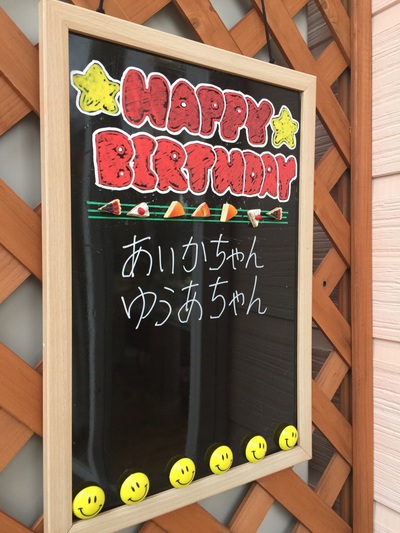 HAPPY
BIRTHDAY
あいかちゃん
ゆうあちゃん